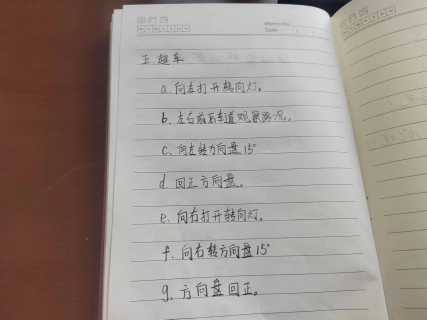 Memo No.
Date
五.超车
a.向左打开转向灯。
b.左右前后车道观察路况。
c.向左转方向盘15°
d.回正方向盘。
e.向右打开转向灯。
f.向右转方向盘15°
g.方向盘回正。